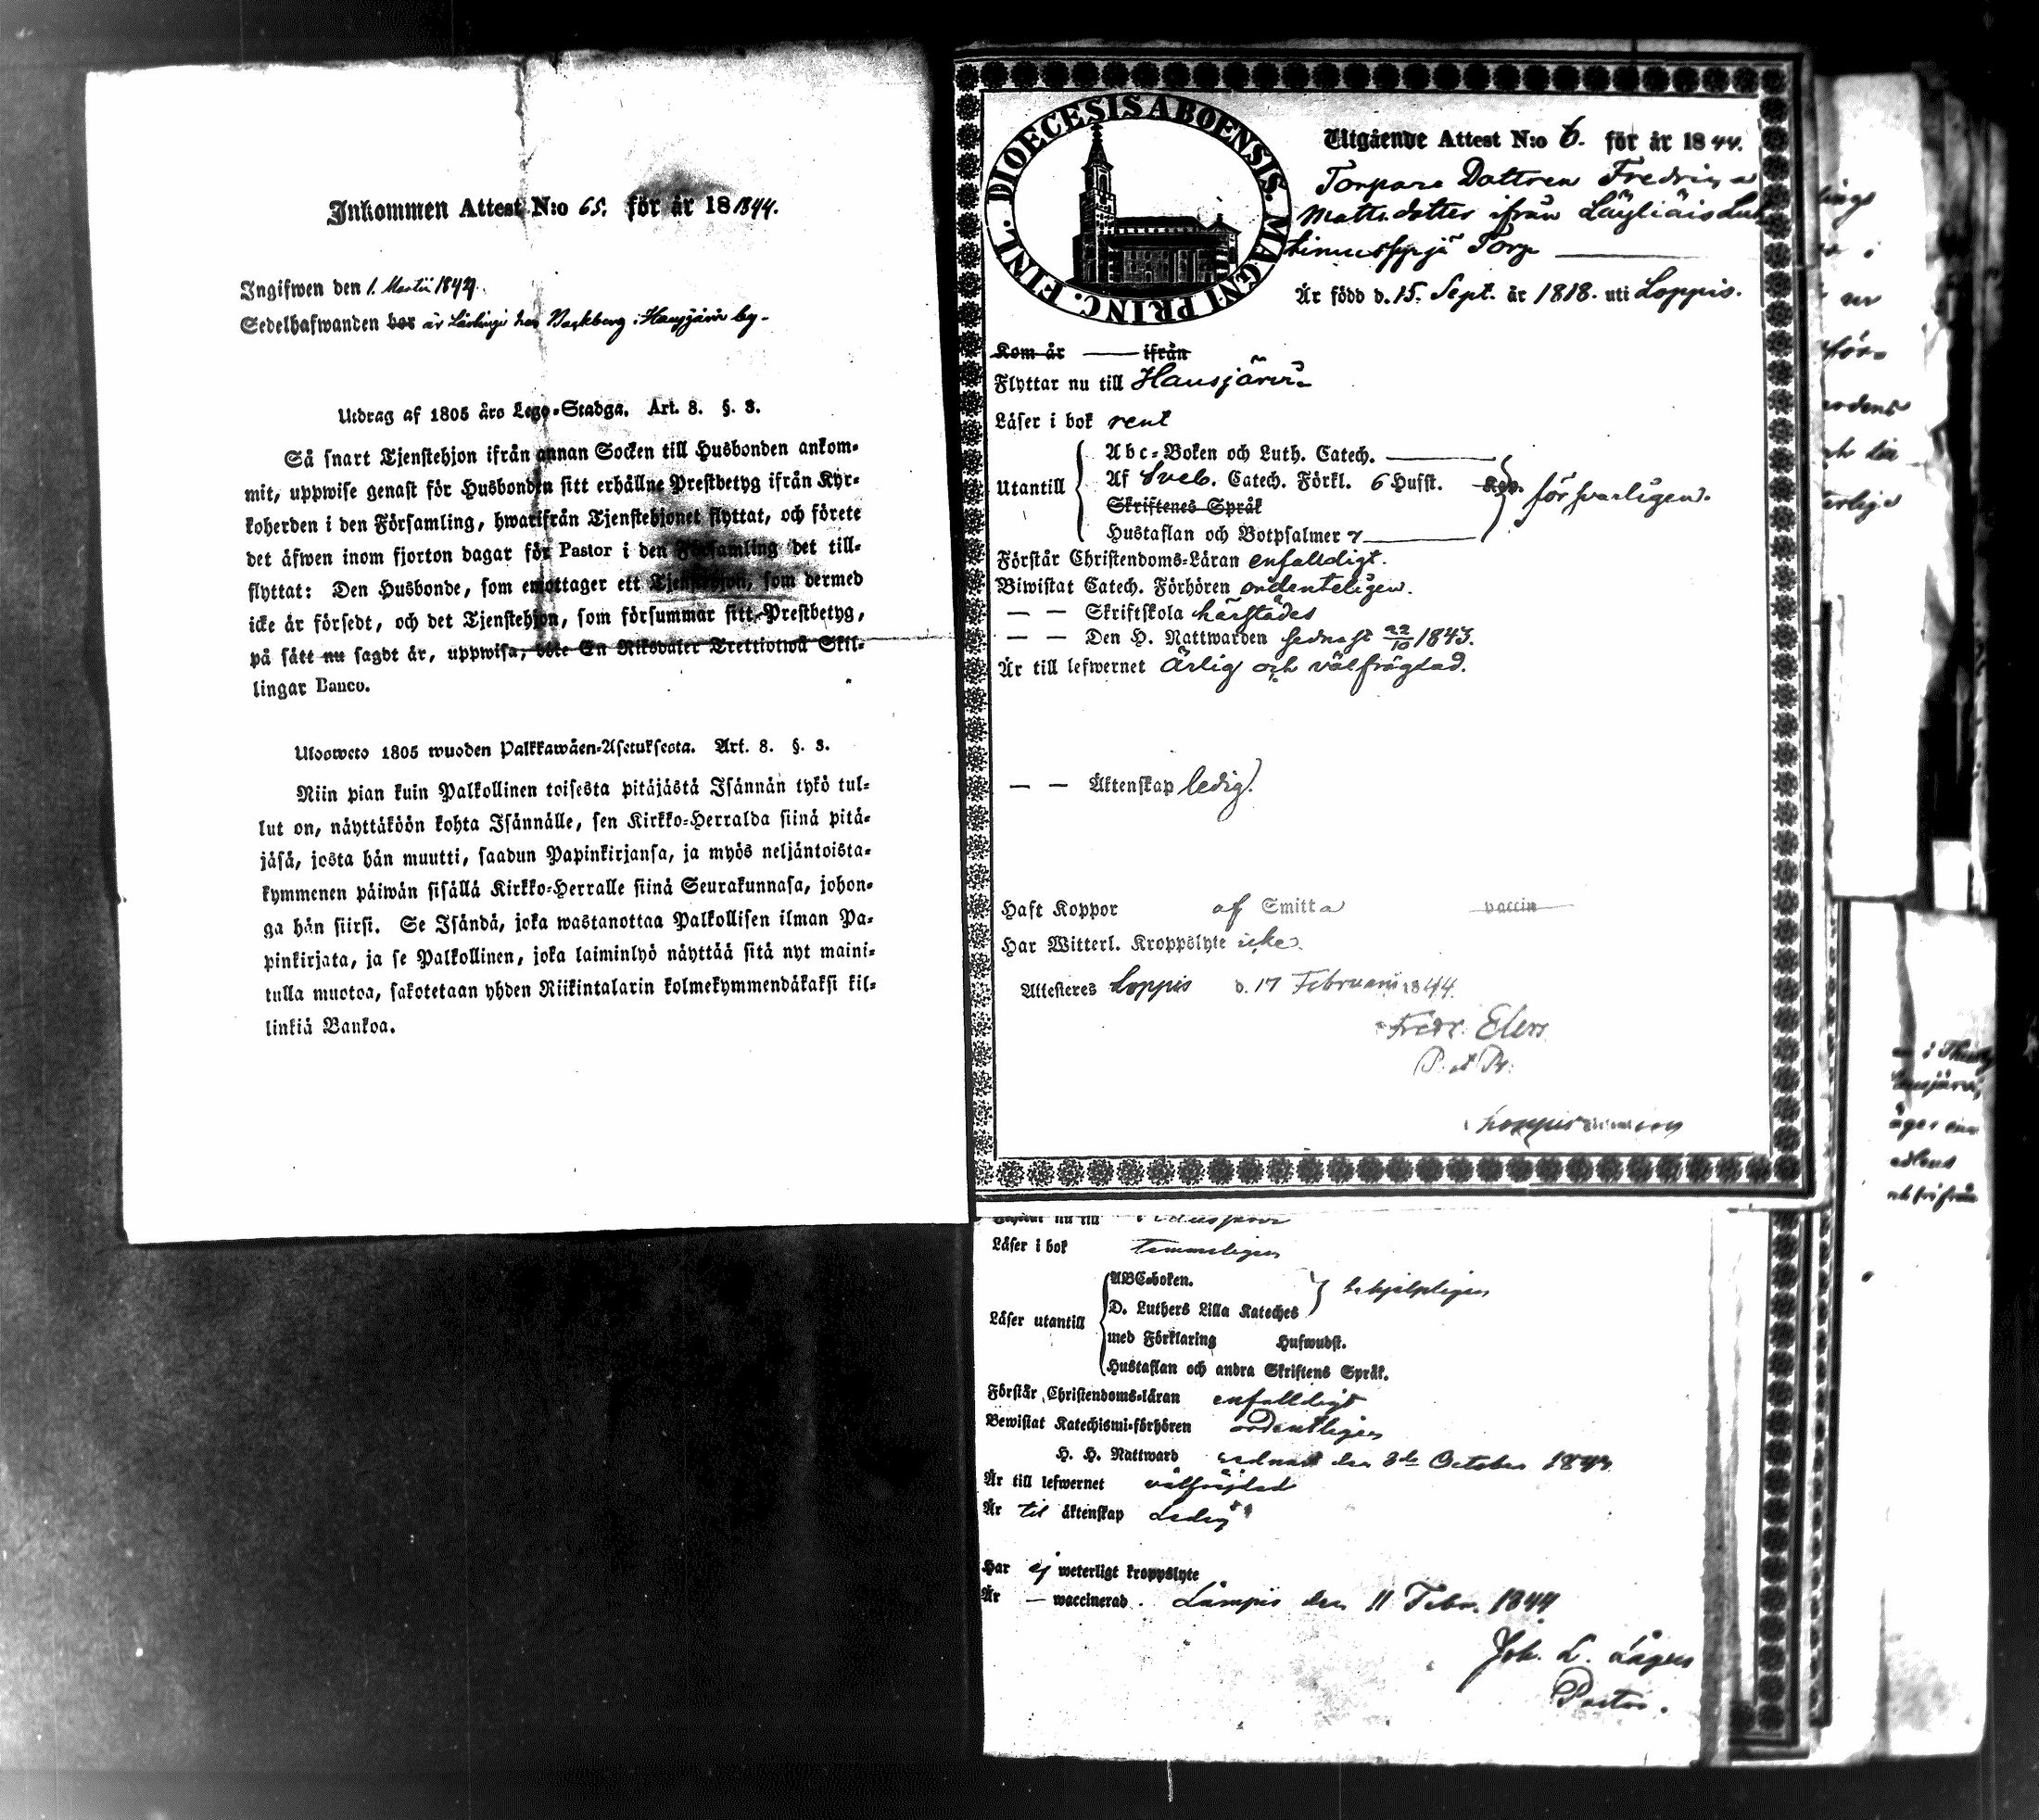 Inkommen Attest N:o 65. för år 181844.
Ingifwen den 1. Martii 1844.
Sedelhafwanden bor är Lärling hos Backberg i Hausjärvi by.
Utdrag af 1805 års Lego-Stadga. Art. 8. §. 3.
Så snart Tjenstehjon ifrån annan Socken till Husbonden ankom-
mit, uppwise genast för Husbonden sitt erhållne Prestbetyg ifrån Kyr-
koherden i den Församling, hwarifrån Tjenstehjonet flyttat, och förete
det äfwen inom fjorton dagar för Pastor i den Församling det till-
flyttat: Den Husbonde, som emottager ett Tjenstehjon, som dermed
icke är försedt, och det Tjenstehjon, som försummar sitt Prestbetyg,
på sätt nu sagdt är, uppwisa, böte En Riksdaler Trettiotwå Skil-
lingar Banco.
Ulosweto 1805 wuoden Palkkawäen-Asetuksesta. Art. 8. §. 3.
Niin pian kuin Palkollinen toisesta pitäjästä Isännän tykö tul-
lut on, näyttäköön kohta Isännälle, sen Kirkko-Herralda siinä pitä-
jäsä, josta hän muutti, saadun Papinkirjansa, ja myös neljäntoista-
kymmenen päiwän sisällä Kirkko-Herralle siinä Seurakunnasa, johon-
ga hän siirsi. Se Isändä, joka wastanottaa Palkollisen ilman Pa-
pinkirjata, ja se Palkollinen, joka laiminlyö näyttää sitä nyt maini-
tulla muotoa, sakotetaan yhden Riikintalarin kolmekymmendäkaksi kil-
linkiä Bankoa.
DIOECESIS ABOENSIS. MAGNI PRINC. FINL.
Utgående Attest N:o 6. för år 1844.
Torpare Dottren Fredrica
Mattsdotter ifrån Läyliäis
Torp
Är född d. 15. Sept. år 1818. uti Loppis.
Kom år ifrån
Flyttar nu till Hausjärvi
Läser i bok rent
Utantill
Abc-Boken och Luth. Catech.
Af Sveb. Catech. Förkl. 6 Hufst. Kap. försvarligen.
Skriftenes Språk
Hustaflan och Botpsalmer 7
Förstår Christendoms-Läran enfalldigt.
Biwistat Catech. Förhören ordenteligen.
— — Skriftskola härstädes
— — Den H. Nattwarden sednast 22/10 1843.
Är till lefwernet Ärlig och välfrägdad.
— — Äktenskap ledig.
Haft Koppor af Smitta vaccin
Har Witterl. Kroppslyte icke.
Attesteres Loppis d. 17 Februarii 1844.
Fredr. Elers
P. et Pr.
Loppis
Flyttar nu till Hausjärvi
Läser i bok temmeligen
Läser utantill
ABC-boken.
D. Luthers Lilla Kateches
behjelpligen
med Förklaring Hufwudst.
Hustaflan och andra Skriftens Språk.
Förstår Christendoms-läran enfalldigt
Bewistat Katechismi-förhören ordentligen
H. H. Nattward sednast den 3de October 1843
Är till lefwernet välfräjdad
Är til äktenskap Ledig
Har ej weterligt kroppslyte
Är — waccinerad. Lampis den 11 Febr. 1844
Joh. L.
Pastor.